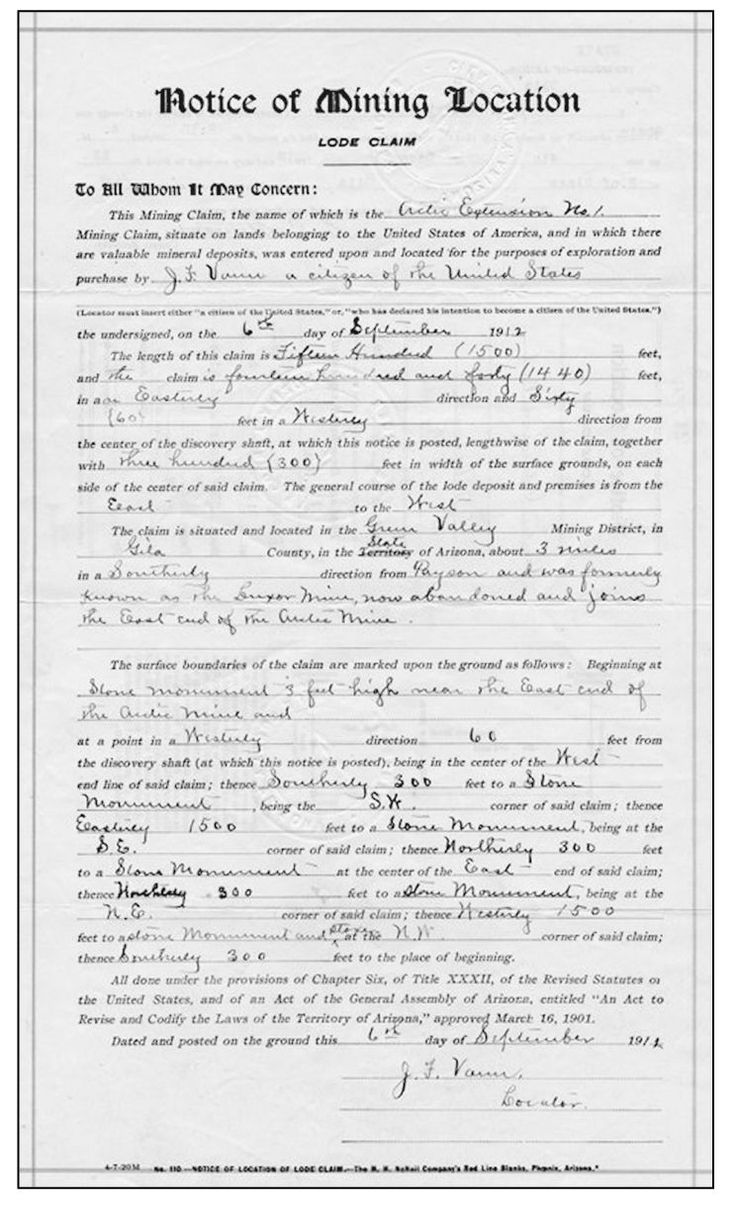 Notice of Mining Location
LODE CLAIM
To All Whom It May Concern:
This Mining Claim, the name of which is the Arctic Extension No 1.
Mining Claim, situate on lands belonging to the United States of America, and in which there
are valuable mineral deposits, was entered upon and located for the purposes of exploration and
purchase by J. F. Vann a citizen of the United States
(Locator must insert either "a citizen of the United States," or, "who has declared his intention to become a citizen of the United States.")
the undersigned, on the 6th day of September 1912
The length of this claim is Fifteen Hundred (1500) feet,
and the claim is fourteen hundred and forty (1440) feet,
in an Easterly direction and Sixty
(60) feet in a Westerly direction from
the center of the discovery shaft, at which this notice is posted, lengthwise of the claim, together
with three hundred (300) feet in width of the surface grounds, on each
side of the center of said claim. The general course of the lode deposit and premises is from the
East to the West
The claim is situated and located in the Green Valley Mining District, in
State
Gila County, in the Territory of Arizona, about 3 miles
in a Southerly direction from Payson and was formerly
known as the Luxor Mine, now abandoned and joins
the East end of the Arctic Mine.
The surface boundaries of the claim are marked upon the ground as follows: Beginning at
Stone monument 3 feet high near the East end of
the Arctic Mine and
at a point in a Westerly direction 60 feet from
the discovery shaft (at which this notice is posted), being in the center of the West
end line of said claim; thence Southerly 300 feet to a Stone
Monument, being the S.W. corner of said claim; thence
Easterly 1500 feet to a Stone Monument, being at the
S.E. corner of said claim; thence Northerly 300 feet
to a Stone Monument at the center of the East end of said claim;
thence Northerly 300 feet to a Stone Monument, being at the
N.E. corner of said claim; thence Westerly 1500
feet to a stone Monument and at the N.W. corner of said claim;
thence Southerly 300 feet to the place of beginning.
All done under the provisions of Chapter Six, of Title XXXII, of the Revised Statutes of
the United States, and of an Act of the General Assembly of Arizona, entitled "An Act to
Revise and Codify the Laws of the Territory of Arizona," approved March 16, 1901.
Dated and posted on the ground this 6th day of September 1912
J. F. Vann.
Locator.
4-7-20M No. 110—NOTICE OF LOCATION OF LODE CLAIM.—The H. H. McNeil Company's Red Line Blanks, Phoenix, Arizona.